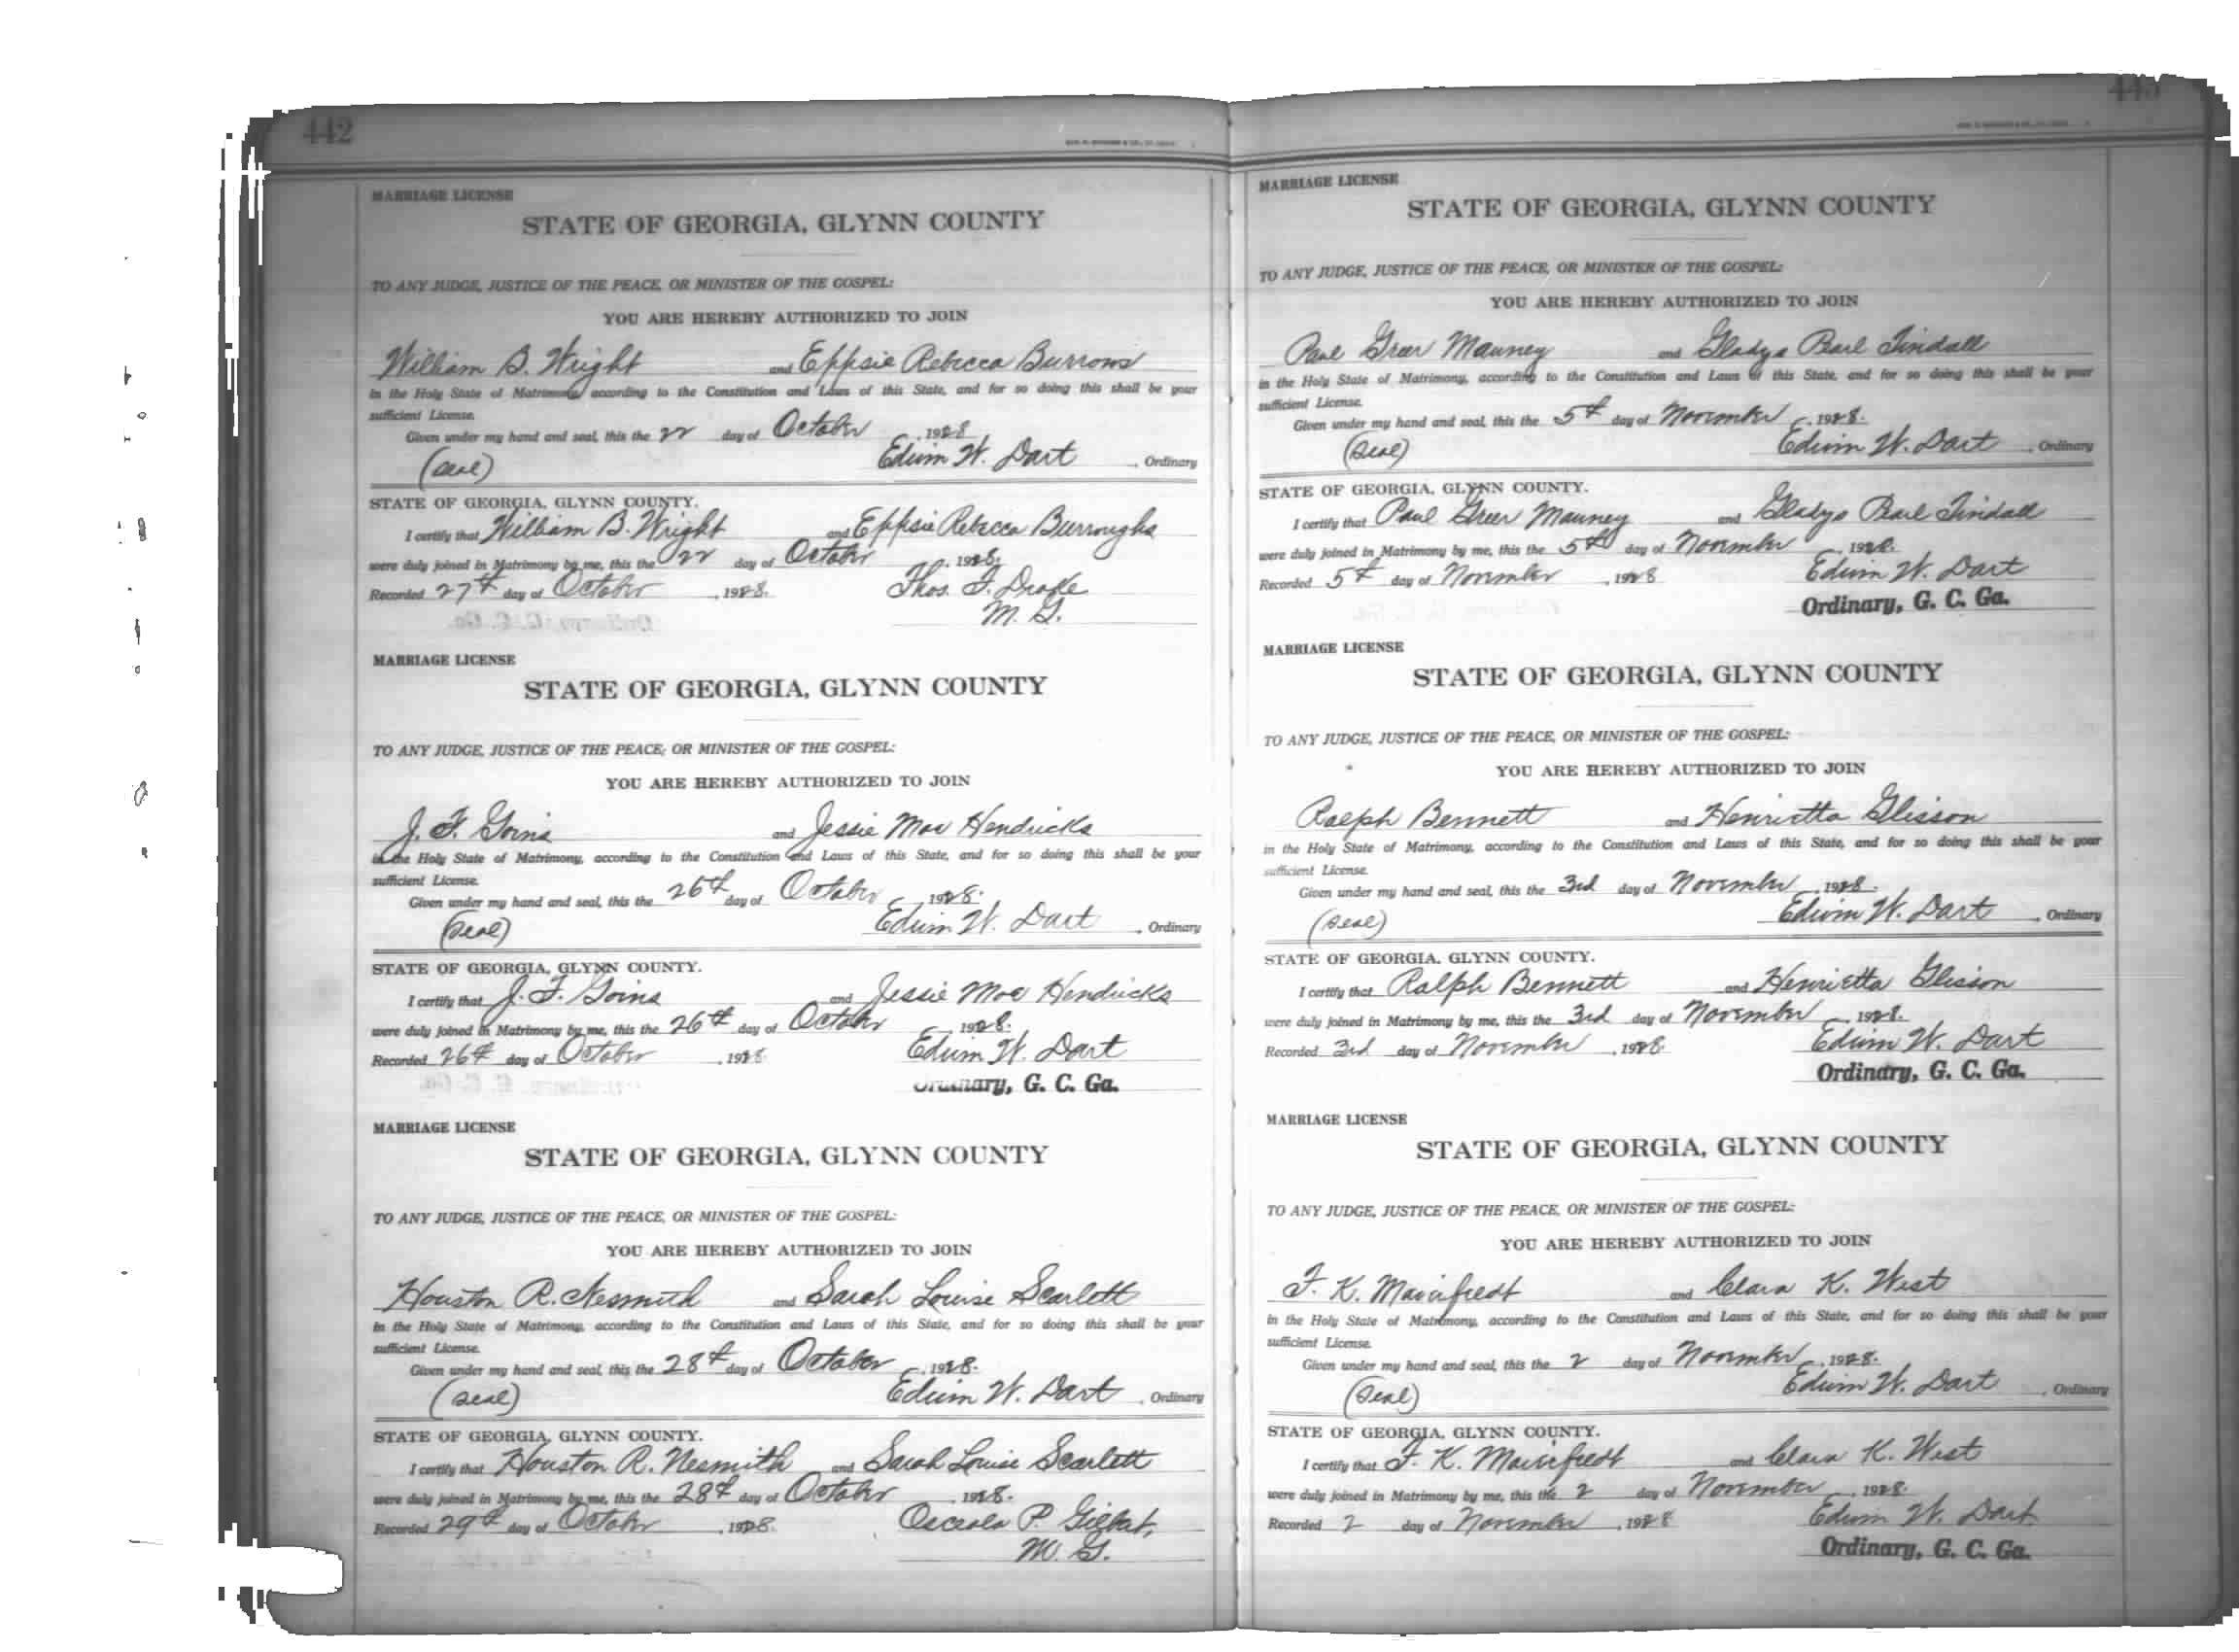 442
MARRIAGE LICENSE
STATE OF GEORGIA, GLYNN COUNTY
TO ANY JUDGE, JUSTICE OF THE PEACE, OR MINISTER OF THE GOSPEL:
YOU ARE HEREBY AUTHORIZED TO JOIN
William B. Wright and Eppsie Rebecca Burrows
in the Holy State of Matrimony, according to the Constitution and Laws of this State, and for so doing this shall be your
sufficient License.
Given under my hand and seal, this the 22 day of October, 1928
(Seal) Edwin W. Dart, Ordinary
STATE OF GEORGIA, GLYNN COUNTY.
I certify that William B. Wright and Eppsie Rebecca Burroughs
were duly joined in Matrimony by me, this the 22 day of October, 1928.
Recorded 27th day of October, 1928. Thos. F. Drake
M. G.
MARRIAGE LICENSE
STATE OF GEORGIA, GLYNN COUNTY
TO ANY JUDGE, JUSTICE OF THE PEACE, OR MINISTER OF THE GOSPEL:
YOU ARE HEREBY AUTHORIZED TO JOIN
J. F. Goins and Jessie Mae Hendricks
in the Holy State of Matrimony, according to the Constitution and Laws of this State, and for so doing this shall be your
sufficient License.
Given under my hand and seal, this the 26th day of October, 1928.
(Seal) Edwin W. Dart, Ordinary
STATE OF GEORGIA, GLYNN COUNTY.
I certify that J. F. Goins and Jessie Mae Hendricks
were duly joined in Matrimony by me, this the 26th day of October, 1928.
Recorded 26th day of October, 1928 Edwin W. Dart
Ordinary, G. C. Ga.
MARRIAGE LICENSE
STATE OF GEORGIA, GLYNN COUNTY
TO ANY JUDGE, JUSTICE OF THE PEACE, OR MINISTER OF THE GOSPEL:
YOU ARE HEREBY AUTHORIZED TO JOIN
Houston R. Nesmith and Sarah Louise Scarlett
in the Holy State of Matrimony, according to the Constitution and Laws of this State, and for so doing this shall be your
sufficient License.
Given under my hand and seal, this the 28th day of October, 1928.
(Seal) Edwin W. Dart, Ordinary
STATE OF GEORGIA, GLYNN COUNTY.
I certify that Houston R. Nesmith and Sarah Louise Scarlett
were duly joined in Matrimony by me, this the 28th day of October, 1928.
Recorded 29th day of October, 1928. Osceola P. Gilbert,
M. G.
MARRIAGE LICENSE
STATE OF GEORGIA, GLYNN COUNTY
TO ANY JUDGE, JUSTICE OF THE PEACE, OR MINISTER OF THE GOSPEL:
YOU ARE HEREBY AUTHORIZED TO JOIN
Paul Greer Mauney and Gladys Pearl Tindall
in the Holy State of Matrimony, according to the Constitution and Laws of this State, and for so doing this shall be your
sufficient License.
Given under my hand and seal, this the 5th day of November, 1928.
(Seal) Edwin W. Dart, Ordinary
STATE OF GEORGIA, GLYNN COUNTY.
I certify that Paul Greer Mauney and Gladys Pearl Tindall
were duly joined in Matrimony by me, this the 5th day of November, 1928.
Recorded 5th day of November, 1928 Edwin W. Dart
Ordinary, G. C. Ga.
MARRIAGE LICENSE
STATE OF GEORGIA, GLYNN COUNTY
TO ANY JUDGE, JUSTICE OF THE PEACE, OR MINISTER OF THE GOSPEL:
YOU ARE HEREBY AUTHORIZED TO JOIN
Ralph Bennett and Henrietta Glisson
in the Holy State of Matrimony, according to the Constitution and Laws of this State, and for so doing this shall be your
sufficient License.
Given under my hand and seal, this the 3rd day of November, 1928.
(Seal) Edwin W. Dart, Ordinary
STATE OF GEORGIA, GLYNN COUNTY.
I certify that Ralph Bennett and Henrietta Glisson
were duly joined in Matrimony by me, this the 3rd day of November, 1928.
Recorded 3rd day of November, 1928 Edwin W. Dart
Ordinary, G. C. Ga.
MARRIAGE LICENSE
STATE OF GEORGIA, GLYNN COUNTY
TO ANY JUDGE, JUSTICE OF THE PEACE, OR MINISTER OF THE GOSPEL:
YOU ARE HEREBY AUTHORIZED TO JOIN
F. K. and Clara K. West
in the Holy State of Matrimony, according to the Constitution and Laws of this State, and for so doing this shall be your
sufficient License.
Given under my hand and seal, this the 2 day of November, 1928.
(Seal) Edwin W. Dart, Ordinary
STATE OF GEORGIA, GLYNN COUNTY.
I certify that F. K. and Clara K. West
were duly joined in Matrimony by me, this the 2 day of November, 1928.
Recorded 2 day of November, 1928 Edwin W. Dart
Ordinary, G. C. Ga.